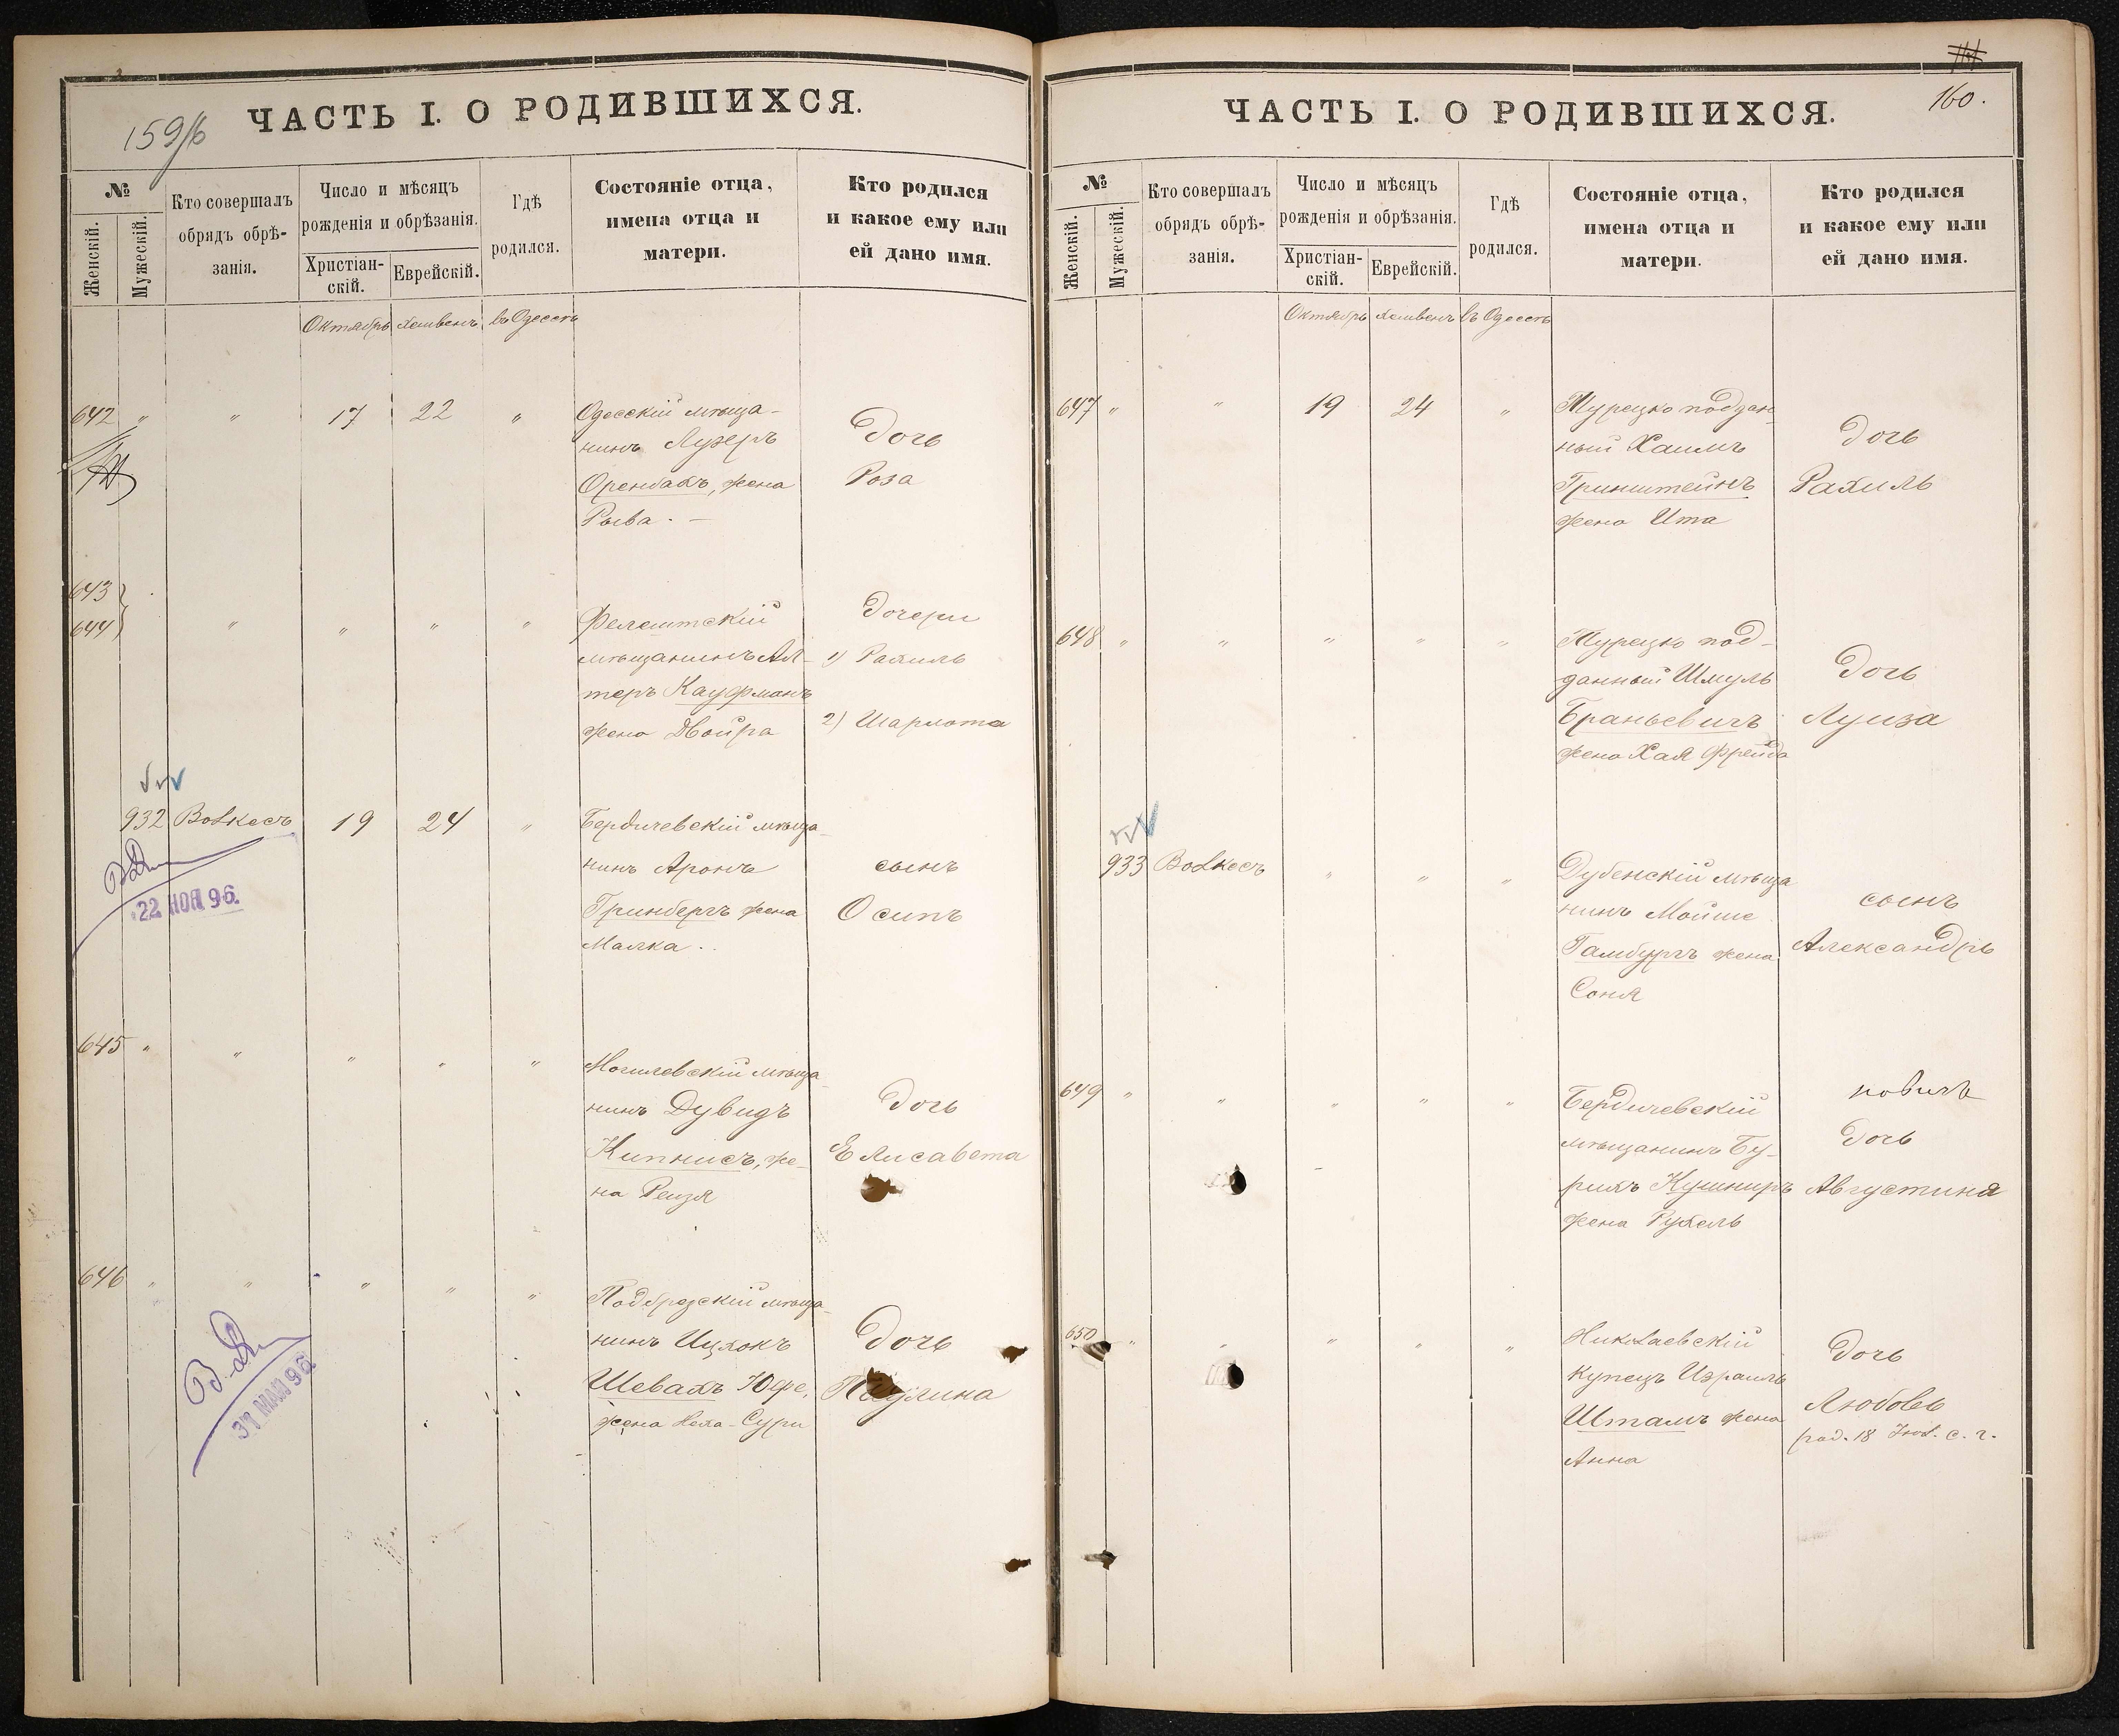 159/б
ЧАСТЬ I. О РОДИВШИХСЯ.
№
Женскій.
Мужескій.
Кто совершалъ
обрядъ обрѣ-
занія.
Число и мѣсяцъ
рожденія и обрѣзанія.
Христіан-
скій.
Еврейскій.
Гдѣ
родился.
Состояніе отца,
имена отца и
матери.
Кто родился
и какое ему или
ей дано имя.
Октябрь Хешвенъ въ Одессѣ
642 " " 17 22 " Одесскій мѣща-
нинъ Лузеръ
Оренбахъ, жена
Рыва. —
Дочь
Роза
643
644 " " " " Фелештскій
мѣщанинъ Ал-
теръ Кауфманъ
жена Двойра
Дочери
1) Рахиль
2) Шарлота
932 Волкесъ 19 24 " Бердичевскій мѣща-
нинъ Аронъ
Гринбергъ жена
Малка.
сынъ
Осипъ
22 НОЯ 96.
645 " " " " " Могилевскій мѣща-
нинъ Дувидъ
Кипнисъ, же-
на Рейзя
Дочь
Елисавета
646 " " " " " Подбрезскій мѣща-
нинъ Ицхокъ
Шевахъ Юфе,
жена Неха-Сури
Дочь
Паулина
31 МАЯ 96
160.
ЧАСТЬ I. О РОДИВШИХСЯ.
№
Женскій.
Мужескій.
Кто совершалъ
обрядъ обрѣ-
занія.
Число и мѣсяцъ
рожденія и обрѣзанія.
Христіан-
скій.
Еврейскій.
Гдѣ
родился.
Состояніе отца,
имена отца и
матери.
Кто родился
и какое ему или
ей дано имя.
Октябрь Хешвенъ въ Одессѣ
647 " " 19 24 " Турецко поддан-
ный Хаимъ
Гринштейнъ
жена Ита
Дочь
Рахиль
648 " " " " " Турецко под-
данный Шмуль
Браньевичъ
жена Хая Фрейда
Дочь
Луиза
933 Волкесъ " " " Дубенскій мѣща
нинъ Мойше
Гамбургъ жена
Соня
сынъ
Александръ
649 " " " " " Бердичевскій
мѣщанинъ Бу-
рихъ Кушниръ
жена Рухель
Дочь
Августина
650 " " " " " Николаевскій
купецъ Израиль
Штамъ жена
Анна
Дочь
Любовь
род. 18 Іюл. с. г.